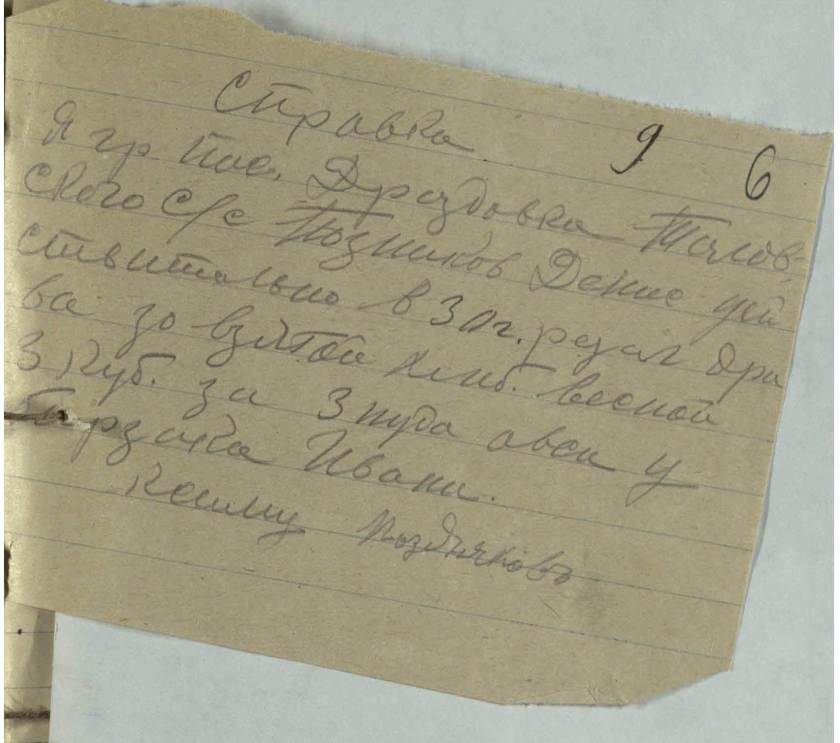 Справка
9 6
Я гр пос. Дроздовка Талов-
ского с/с Позников Денис дей
ствительно в 30 г. резал дра
ва зо взятой хлеб. весной
3 куб. за 3 пуда овса у
Ивана.
к сему